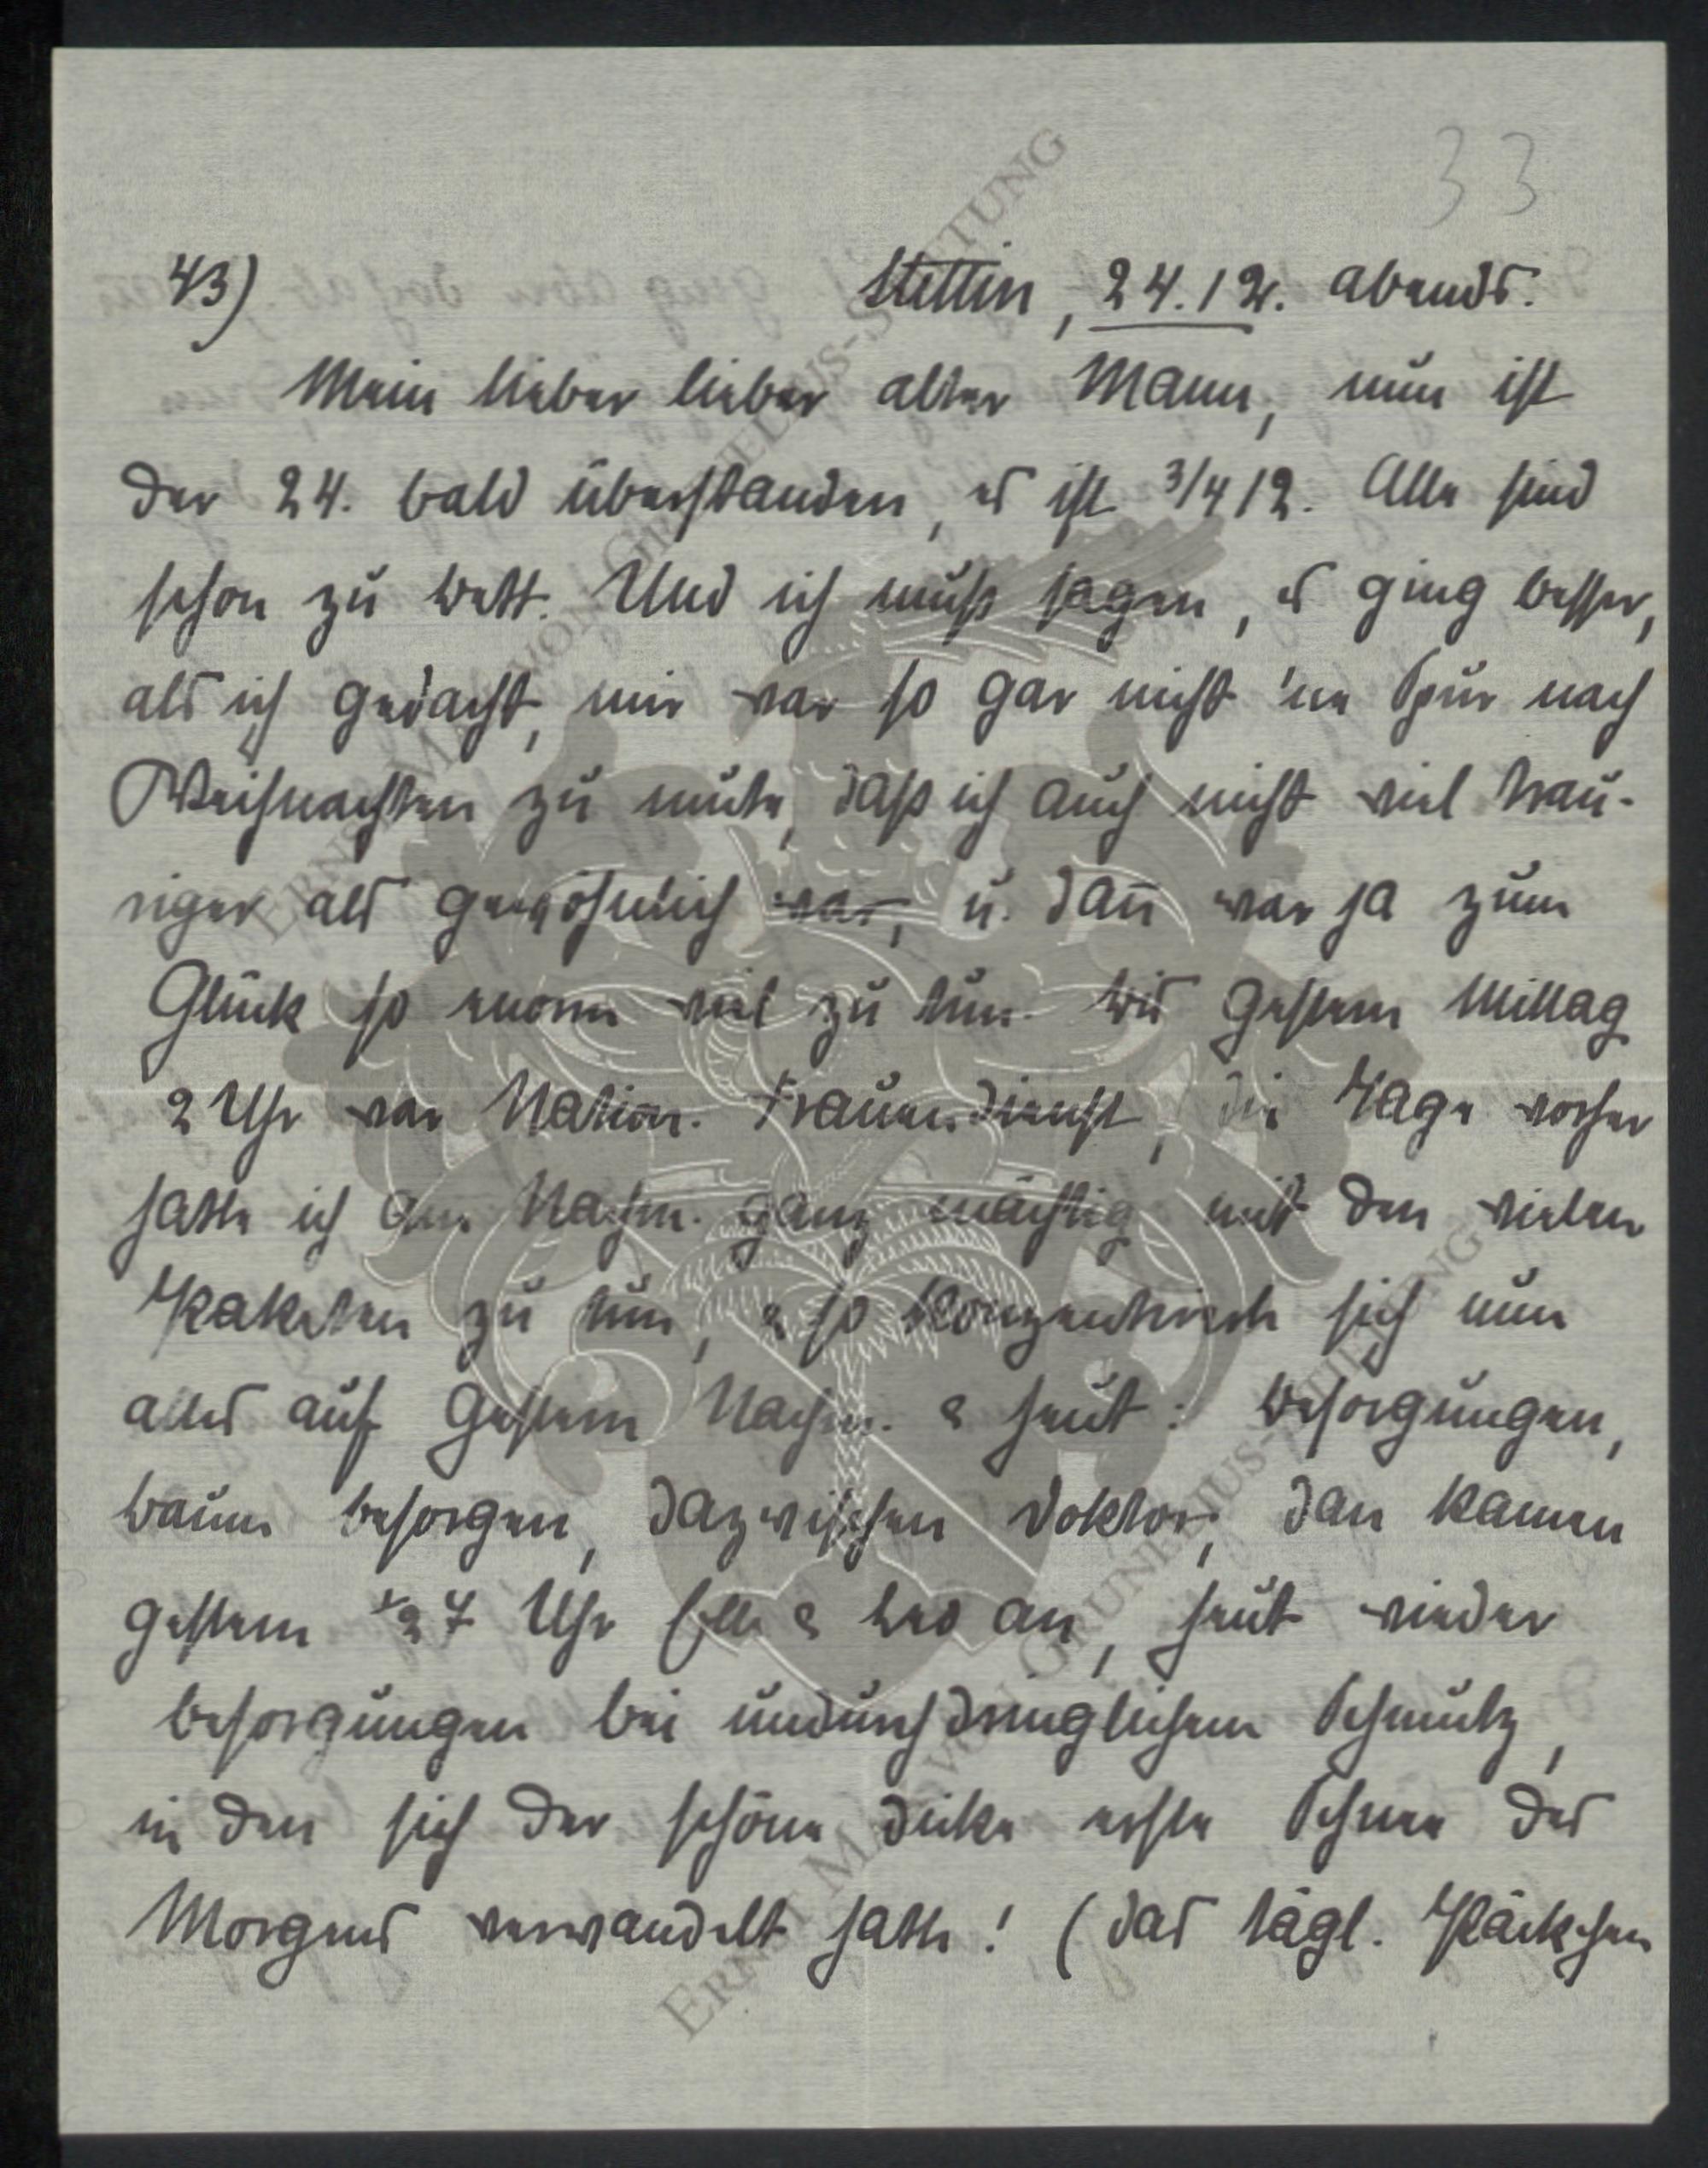 33
43) Stettin, 24.12. abends.
Mein lieber lieber alter Mann, nun ist
der 24. bald überstanden, es ist 3/4 12. Alle sind
schon zu Bett. Und ich muß sagen, es ging besser,
als ich gedacht, mir war so gar nicht 'ne Spur nach
Weihnachten zu mute, daß ich auch nicht viel trau-
riger als gewöhnlich war, u. dan̄ war ja zum
Glück so enorm viel zu tun. Bis gestern Mittag
2 Uhr war Nation. Frauendienst, die Tage vorher
hatte ich am Nachm. ganz mächtig mit den vielen
Paketen zu tun, & so konzentrierte sich nun
alles auf gestern Nachm. & heut: Besorgungen,
Baum besorgen, dazwischen Doktor, dan kamen
gestern 1/2 7 Uhr & Leo an, heut wieder
Besorgungen bei undurchdringlichem Schmutz,
in den sich der schöne dicke erste Schnee des
Morgens verwandelt hatte! (das tägl. Päckchen
ERNST MAX VON GRUNELIUS-STIFTUNG
ERNST MAX VON GRUNELIUS-STIFTUNG